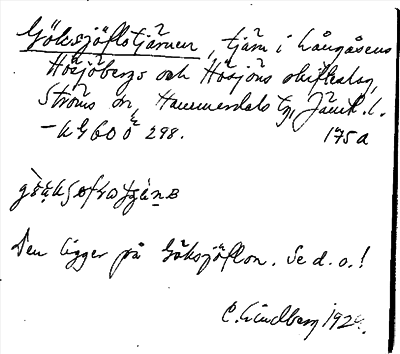 Göksjöflotjärnen, tjärn i Långåsens
Hösjöbergs och Hösjöns skifteslag,
Ströms sn, Hammerdals tg, Jämtl. l.
– k G 60 Ö 298. 175 a
Den ligger på Göksjöflon. Se d. o.!
C. Lindberg 1924.